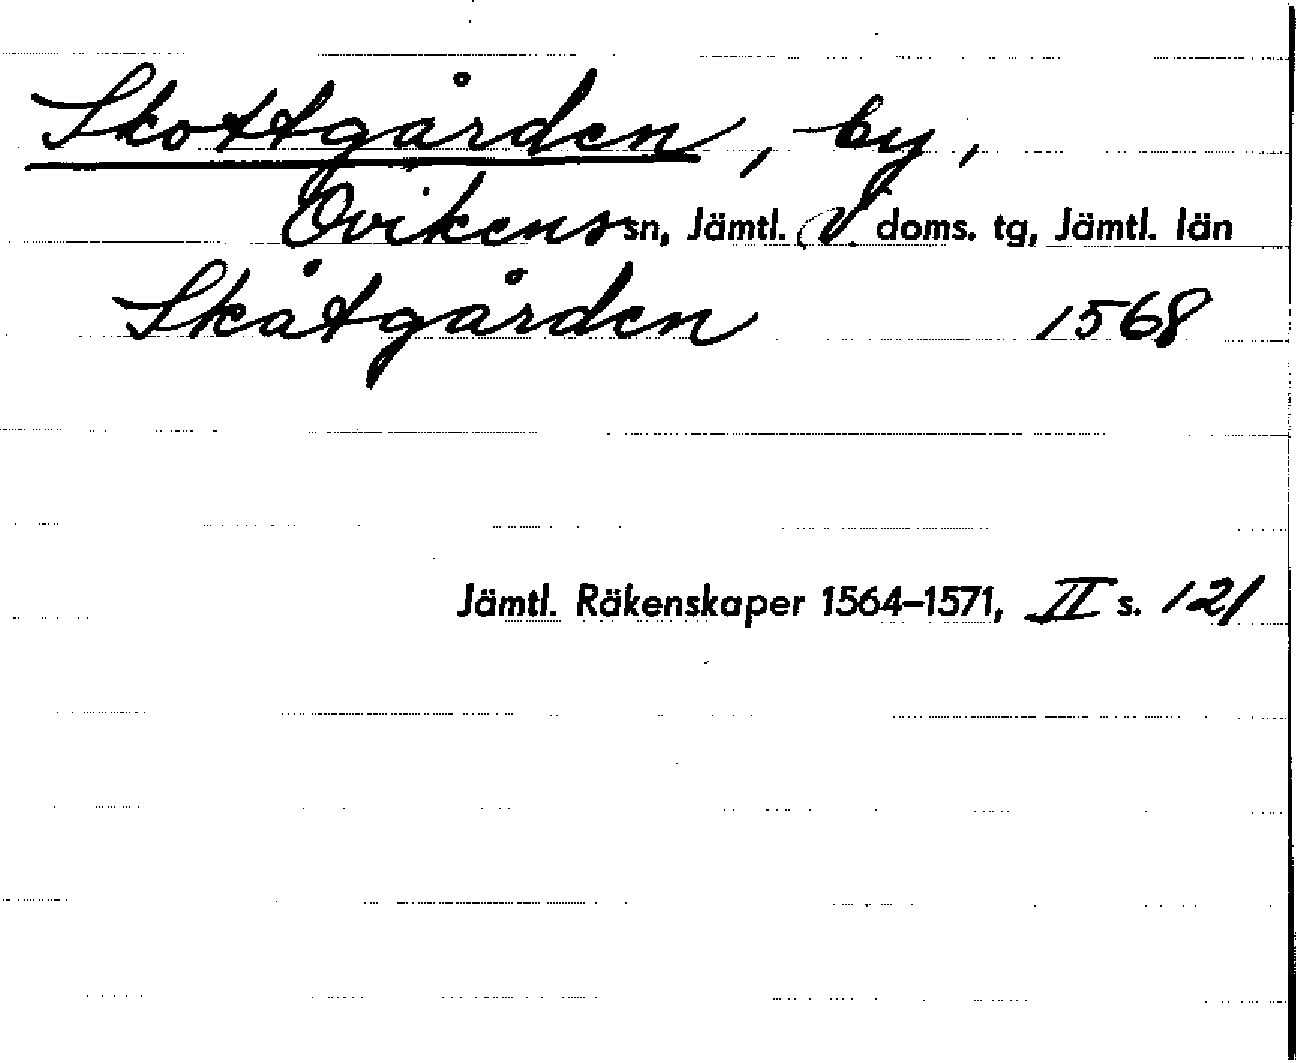 Skottgården, by,
Ovikens sn, Jämtl. V. doms. tg, Jämtl. län
Skåtgården 1568
Jämtl. Räkenskaper 1564–1571, II s. 121